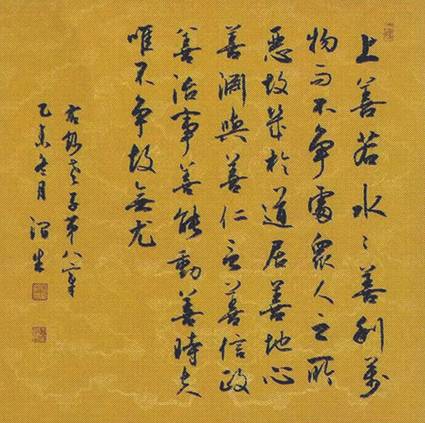 上善若水〻善利萬
物而不争處衆人之所
惡故幾於道居善地心
善淵與善仁言善信政
善治事善能動善時夫
唯不争故無尤
右録老子第八章
乙未冬月